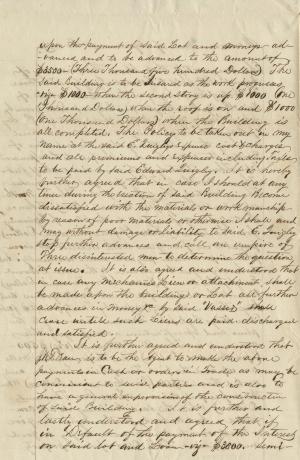 upon the payment of said Lot and moneys ad-
vanced and to be advanced to the amount of
$3500 (Three Thousand five hundred Dollars) The
said Building is to be insured as the work progresses
viz $1000 when the second story is up $1000 (One
Thousand Dollars) when the roof is on and $1000
(One Thousand Dollars) when the Building is
all completed. The Policy to be taken out in my
name at the said E. Quigley's expense cost & charges
and all premiums and expenses including Taxes
to be paid by said Edward Quigley. It is hereby
further agreed, that in case I should at any
time during the erection of said Building Become
dissatisfied with the materials or workmanship
by reason of poor materials or otherwise I shall and
may without damage or liability to said E. Quigley
stop further advances and call an umpire of
Three disinterested men to determine the question
at issue. It is also agreed and understood that
in case any Mechanics Lien or attachment shall
be made upon the building or Lot all further
advances in money &c by said Vassar shall
Cease until such Liens are paid discharged
and satisfied.
It is further agreed and understood that
is to be the Agent to make the afore
payments in Cash or orders in Trade as may be
convenient to said parties and is also to
have a general supervision of the construction
of said Building. It is further and
lastly understood and agreed, that if
in default of the payment of the Interest
on said Lot and Loan viz $3800. Semi